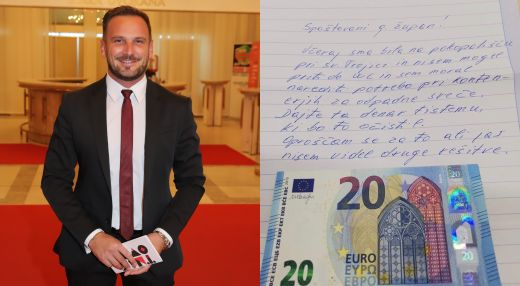 Spoštovani g. župan!
Včeraj sma bila na pokopališču
pri sv. Trojici in nisem mogel
priti do WC in sem moral
narediti potrebo pri konten-
erjih za odpadne sveče.
Dajte ta denar tistemu,
ki bo to očistil.
Oproščam se za to ali jas
nisem videl druge rešitve.
20
EURO
ΕΥΡΩ
ЕВРО
20